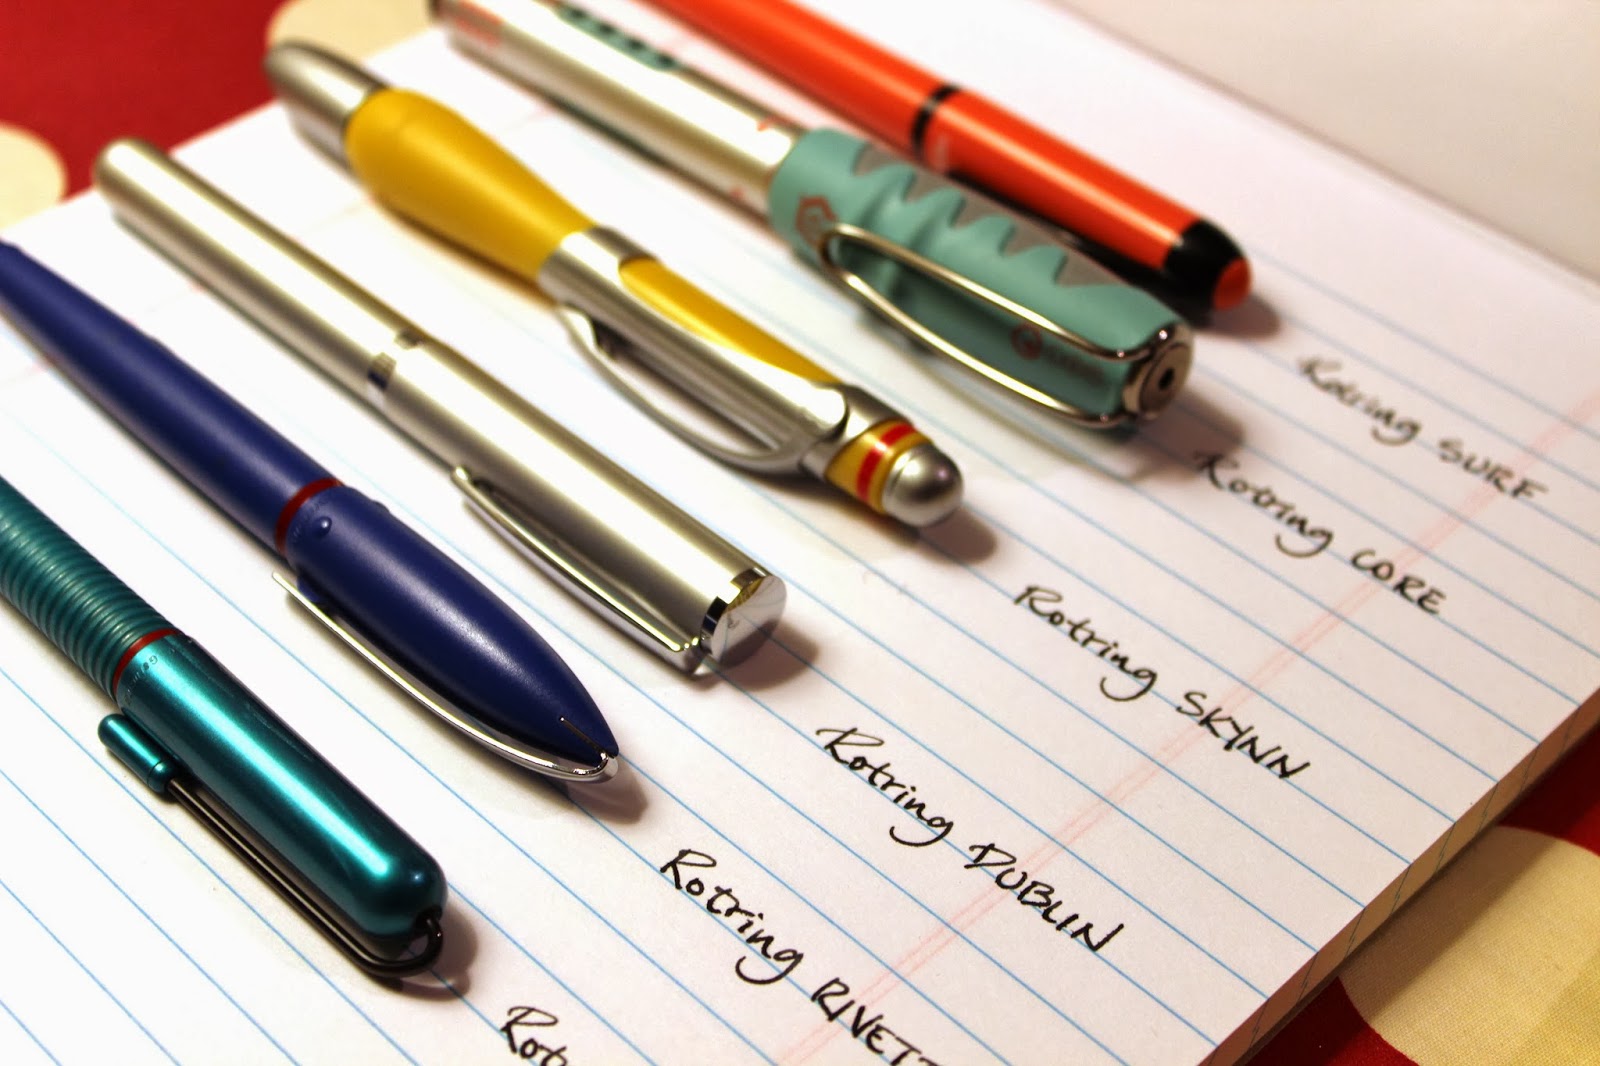 Rotring SURF
Rotring CORE
Rotring SKYNN
Rotring DUBLIN
Rotring RIVETT
Rot